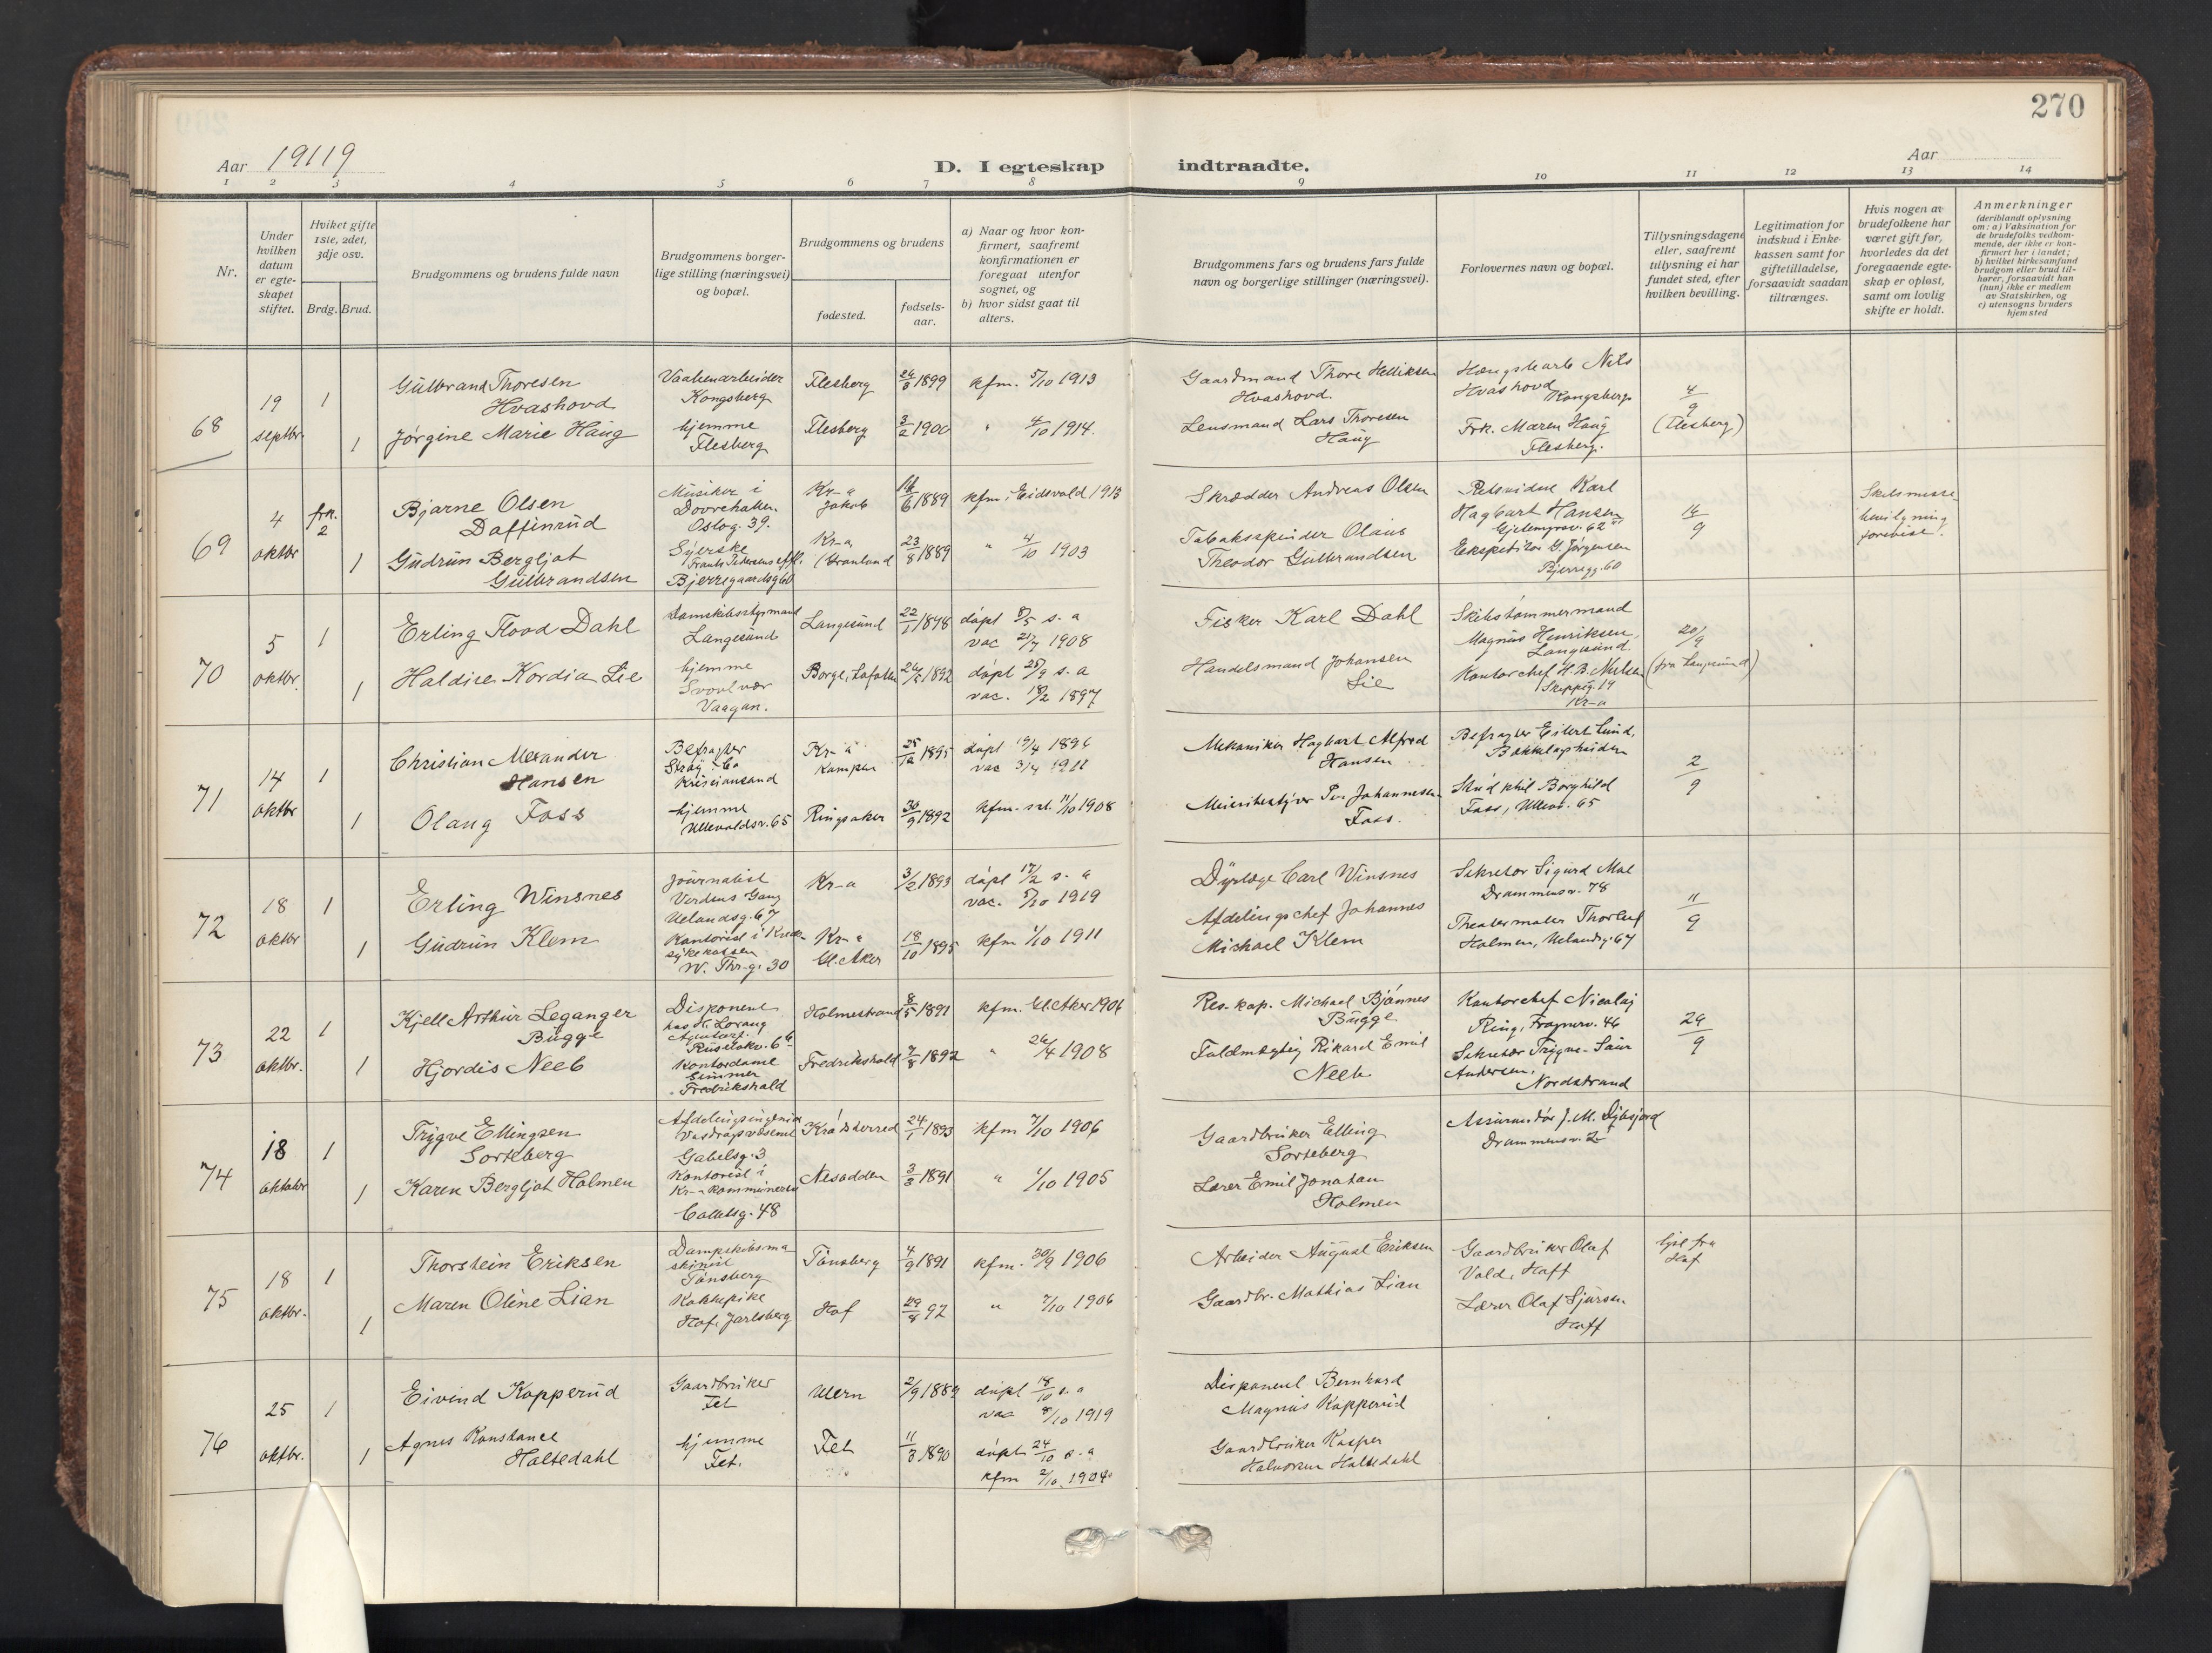 270
Aar 19119
D. I egteskap indtraadte.
Aar
1 2 3 4 5 6 7 8 9 10 11 12 13 14
Nr.
Under
hvilken
datum
er egte-
skapet
stiftet.
Hvilket gifte
1ste, 2det,
3dje osv.
Brdg. Brud.
Brudgommens og brudens fulde navn
Brudgommens borger-
lige stilling (næringsvei)
og bopæl.
Brudgommens og brudens
fødested.
fødsels-
aar.
a) Naar og hvor kon-
firmert, saafremt
konfirmationen er
foregaat utenfor
sognet, og
b) hvor sidst gaat til
alters.
Brudgommens fars og brudens fars fulde
navn og borgerlige stillinger (næringsvei).
Forlovernes navn og bopæl.
Tillysningsdagene
eller, saafremt
tillysning ei har
fundet sted, efter
hvilken bevilling.
Legitimation for
indskud i Enke-
kassen samt for
giftetilladelse,
forsaavidt saadan
tiltrænges.
Hvis nogen av
brudefolkene har
været gift før,
hvorledes da det
foregaaende egte-
skap er opløst,
samt om lovlig
skifte er holdt.
Anmerkninger
(deriblandt oplysning
om: a) Vaksination for
de brudefolks vedkom-
mende, der ikke er kon-
firmert her i landet;
b) hvilket kirkesamfund
brudgom eller brud til-
hører, forsaavidt han
(hun) ikke er medlem
av Statskirken, og
c) utensogns bruders
hjemsted
68
19
septbr.
1
1
Gulbrand Thoresen
Hvashovd
Jørgine Marie Haug
Vaabenarbeider
Kongsberg
hjemme
Flesberg
Flesberg
Flesberg
1899
3/2 1900
kfm. 5/10 1913
" 4/10 1914.
Gaardmand Thore Helliksen
Hvashovd.
Lensmand Lars Thoresen
Haug
Nils
Hvashovd
Kongsberg
Frk. Maren Haug
Flesberg.
4/9
(Flesberg)
69
4
oktbr
frk.
2
1
Bjarne Olsen
Daffinrud
Gudrun Bergljot
Gulbrandsen
Musiker i
Dovrehallen.
Oslog. 39.
Syerske
Bjerregaardsg 60
Kr-a
Jakob
Kr-a
(Grønland
6 1889
23/8 1889
kfm. i Eidsvold 1913
" 4/10 1903
Skrædder Andreas Olsen
Tobaksspinder Olaus
Theodor Gulbrandsen
Karl
Hagbart Hansen
Gjetemyrsv. 62
Ekspeditør G. Jørgensen
Bjerregg. 60
16/9
Skilsmisse
bevilgning
forevist.
70
5
oktbr.
1
1
Erling Flood Dahl
Haldis Kordia Lie
Langesund
hjemme
Svolvær
Vaagan.
Langesund
Borge, Lofoten
22/1 1898
1892
dåpt 8/5 s. a
vac 21/7 1908
dåpt 25/9 s. a
vac. 18/2 1897
Fisker Karl Dahl
Handelsmand Johansen
Lie
Skibstømmermand
Magnus Henriksen,
Langesund.
Kontorchef H. B. Nilsen
Skippg. 19
Kr-a
20/9
(fra Langesund)
71
14
oktbr
1
1
Christian Alexander
Hansen
Olaug Foss
Befragter
Strøy & Co
Kristiansand
hjemme
Ullevoldsv. 65
Kr-a
Kampen
Ringsaker
25/12 1895
30/9 1892
dåpt 19/4 1896
vac 3/4 1911
kfm. 11/10 1908
Mekaniker Hagbart Alfred
Hansen
Meieribestyrer Per Johannesen
Foss.
Befragter Eilert Lund,
Bækkelagshøiden
Borghild
Foss, Ullevv. 65
2/9
72
18
oktbr
1
1
Erling Winsnes
Gudrun Klem
Journalist
Verdens Gang
Uelandsg. 67
Kontorist i
sykekassen
W. Thr-g. 30
Kr-a
Kr-a
Gl. Aker
3/2 1893
18/10 1895
dåpt 17/2 s. a
vac. 5/10 1919
kfm 1/10 1911
Dyrlæge Carl Winsnes
Afdelingschef Johannes
Michael Klem
Sekretær Sigurd Moe
Drammensv. 78
Theatermaler Thorleif
Holmen, Uelandsg. 67
11/9
73
22
oktbr.
1
1
Kjell Arthur Leganger
Bugge
Hjordis Neeb
Disponent
hos N. Lorang
Agentur.
Ruseløkv. 6
Kontordame
Fredrikshald
Holmestrand
Fredrikshald
8/5 1891
7/8 1892
kfm. Gl. Aker 1906
" 26/4 1908
Res. kap. Michael Bjønnes
Bugge
Fuldmægtig Rikard Emil
Neeb
Kontorchef Nicolaj
Ring, Frognerv. 46
Sekretær Trygve
Andersen,
Nordstrand
29/9
74
18
oktober
1
1
Trygve Ellingsen
Sorteberg
Karen Bergljot Holmen
Afdelingsingeniør
Vasdragsvæsenet
Gabelsg. 3
Kontorist i
Kr-a kommunerev
Colletsg. 48
Krødsherred
Nesodden
24/1 1893
3/3 1891
kfm 7/10 1906
" 1/10 1905
Gaardbruker Elling
Sorteberg
Lærer Emil Jonatan
Holmen
Assurandør J. M.
Drammensv. 2
75
18
oktbr.
1
1
Thorstein Eriksen
Maren Oline Lian
Dampskibsma-
skinist
Tønsberg
Kokkepike
Hof, Jarlsberg
Tønsberg
Hof
4/9 1891
29/8 92
kfm. 30/9 1906
" 7/10 1906
Arbeider August Eriksen
Gaardbr. Mathias Lian
Gaardbruker Olaf
Vold, Hoff
Lærer Olaf Sjursen
Hoff
lyst fra
Hof
76
25
oktbr.
1
1
Eivind Kopperud
Agnes Konstance
Holtedahl
Gaardbruker
Fet
hjemme
Fet.
Ullern
Fet
2/9 1889
11/3 1890
dåpt 18/10 s. a
vac 8/10 1919
dåpt 24/10 s. a
kfm 2/10 1904
Disponent Bernhard
Magnus Kopperud
Gaardbruker Kasper
Halvorsen Holtedahl